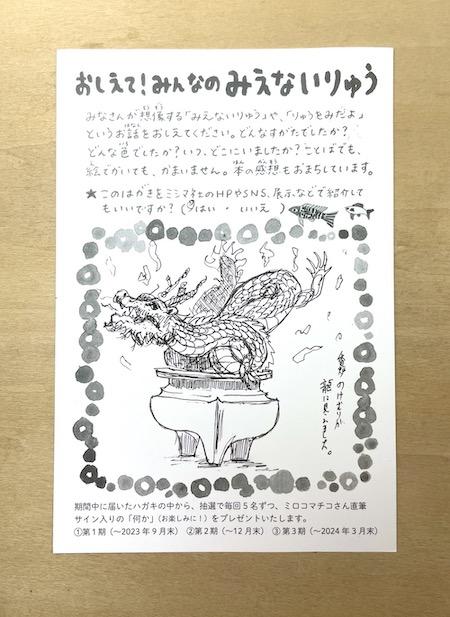 おしえて!みんなのみえないりゅう
みなさんが想像する「みえないりゅう」や、「りゅうをみたよ」
というお話をおしえてください。どんなすがたでしたか?
どんな色でしたか?いつ、どこにいましたか?ことばでも、
絵でかいても、かまいません。本の感想もおまちしています。
★このはがきをミシマ社のHPやSNS、展示などで紹介して
もいいですか?(はい・いいえ)
のけむりが
龍に見えました。
期間中に届いたハガキの中から、抽選で毎回5名ずつ、ミロコマチコさん直筆
サイン入りの「何か」(お楽しみに!)をプレゼントいたします。
①第1期(〜2023年9月末) ②第2期(〜12月末) ③第3期(〜2024年3月末)